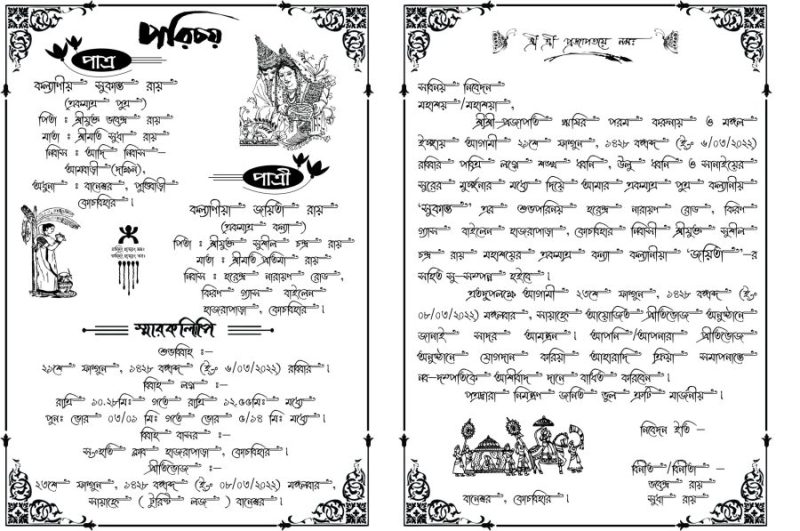 পরিচয়
পাত্র
কল্যাণীয় সুকান্ত রায়
(একমাত্র পুত্র)
পিতা : শ্রীযুক্ত ভবেন্দ্র রায়
মাতা : শ্রীমতি সুধা রায়
নিবাস : আদি নিবাস-
আমবাড়ী (দক্ষিন),
অধুনা : বানেশ্বর, পুন্ডিবাড়ী
কোচবিহার।
পাত্রী
কল্যাণীয়া জয়িতা রায়
(একমাত্র কন্যা)
পিতা : শ্রীযুক্ত সুশীল চন্দ্র রায়
মাতা : শ্রীমতি প্রতিমা রায়
নিবাস : হরেন্দ্র নারায়ণ রোড,
কিরণ গ্যাস বাইলেন
হাজরাপাড়া, কোচবিহার।
স্মারকলিপি
শুভবিবাহ :-
২১শে ফাল্গুন, ১৪২৮ বঙ্গাব্দ (ইং ৬/০৩/২০২২) রবিবার।
বিবাহ লগ্ন :-
রাত্রি ১০.২৮মিঃ গতে রাত্রি ১২.৫৫মিঃ মধ্যে
পুনঃ ভোর ০৩/০১ মিঃ গতে ভোর ৫/১৪ মিঃ মধ্যে।
বিবাহ বাসর :-
সংহতি ক্লাব হাজরাপাড়া, কোচবিহার।
প্রীতিভোজ :-
২৩শে ফাল্গুন, ১৪২৮ বঙ্গাব্দ (ইং ০৮/০৩/২০২২) মঙ্গলবার,
সায়াহ্নে ( টুরিস্ট লজ ) বানেশ্বর।
শ্রী শ্রী প্রজাপতয়ে নমঃ
সবিনয় নিবেদন
মহাশয়/মহাশয়া,
শ্রীশ্রী-প্রজাপতি ঋষির পরম করুনায় ও মঙ্গল
ইচ্ছায় আগামী ২১শে ফাল্গুন, ১৪২৮ বঙ্গাব্দ (ইং ৬/০৩/২০২২)
রবিবার পবিত্র লগ্নে শঙ্খ ধ্বনি, উলু ধ্বনি ও সানাইয়ের
সুরের মুর্চ্ছনার মধ্যে দিয়ে আমার একমাত্র পুত্র কল্যানীয়
'সুকান্ত' এর শুভপরিনয় হরেন্দ্র নারায়ণ রোড, কিরণ
গ্যাস বাইলেন হাজরাপাড়া, কোচবিহার নিবাসী শ্রীযুক্ত সুশীল
চন্দ্র রায় মহাশয়ের একমাত্র কন্যা কল্যানীয়া 'জয়িতা'-র
সহিত সু-সম্পন্ন হইবে।
এতদুপলক্ষে আগামী ২৩শে ফাল্গুন, ১৪২৮ বঙ্গাব্দ (ইং
০৮/০৩/২০২২) মঙ্গলবার, সায়াহ্নে আয়োজিত প্রীতিভোজ অনুষ্ঠানে
জানাই সাদর আমন্ত্রন। আপনি/আপনারা প্রীতিভোজ
অনুষ্ঠানে যোগদান করিয়া আহারাদি ক্রিয়া সমাপনান্তে
নব-দম্পতিকে আশীর্বাদ দানে বাধিত করিবেন।
পত্রদ্বারা নিমন্ত্রণ জনিত ভুল ত্রুটি মার্জনীয়।
নিবেদন ইতি-
বিনীত/বিনীতা-
ভবেন্দ্র রায়
সুধা রায়
বানেশ্বর, কোচবিহার।